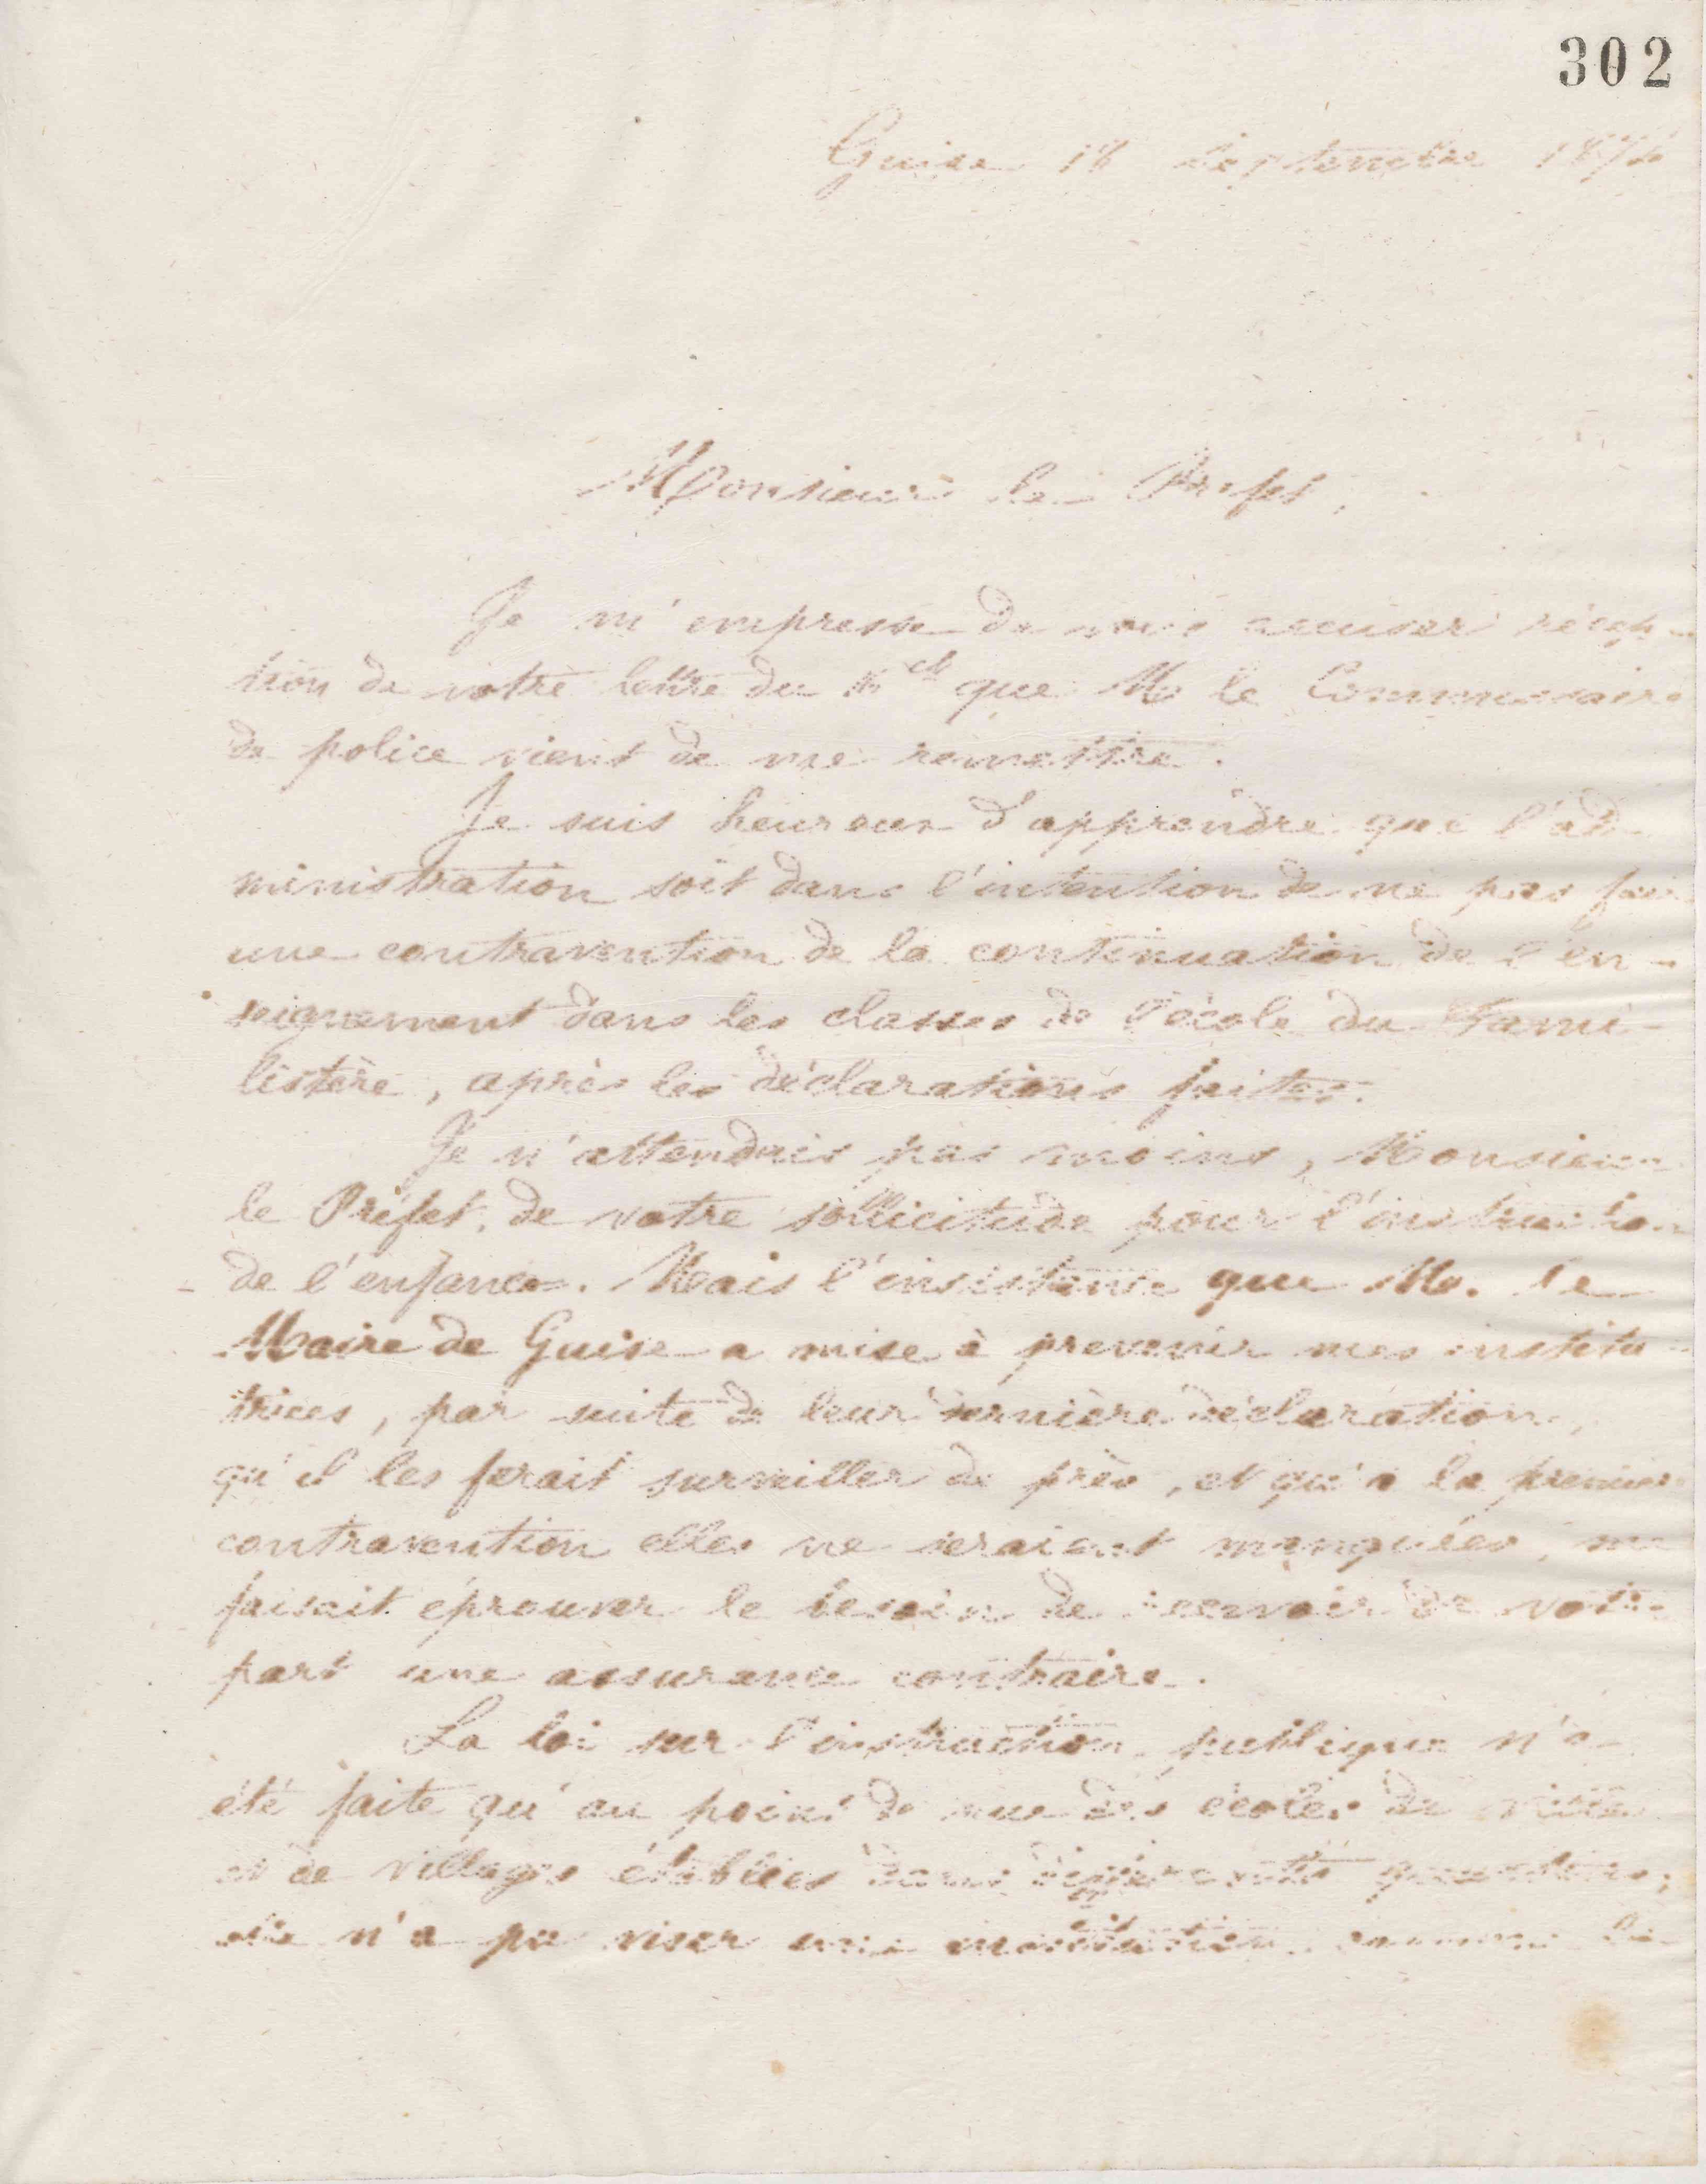 302
Guise 18 Septembre 187
Monsieur le Préfet,
Je m'empresse de vous accuser récep-
tion de votre lettre du 16 ct que M. le Commissaire
de police vient de me remettre.
Je suis heureux d'apprendre que l'ad-
ministration soit dans l'intention de ne pas faire
une contravention de la continuation de l'en-
seignement dans les classes de l'école du Fami-
listère, après les déclarations faites.
Je n'attendais pas moins, Monsieur
le Préfet, de votre sollicitude pour l'instruction
de l'enfance. Mais l'insistance que M. le
Maire de Guise a mise à prevenir mes institu-
trices, par suite de leur dernière déclaration,
qu'il les ferait surveiller de près, et qu'a la premiere
contravention elles ne seraient manquées, me
faisait éprouver le besoin de recevoir de votre
part une assurance contraire.
La loi sur l'instruction publique n'a
été faite qu'au point de vue des écoles de villes
et de villages établies dans
elle n'a pu viser une institution comme le